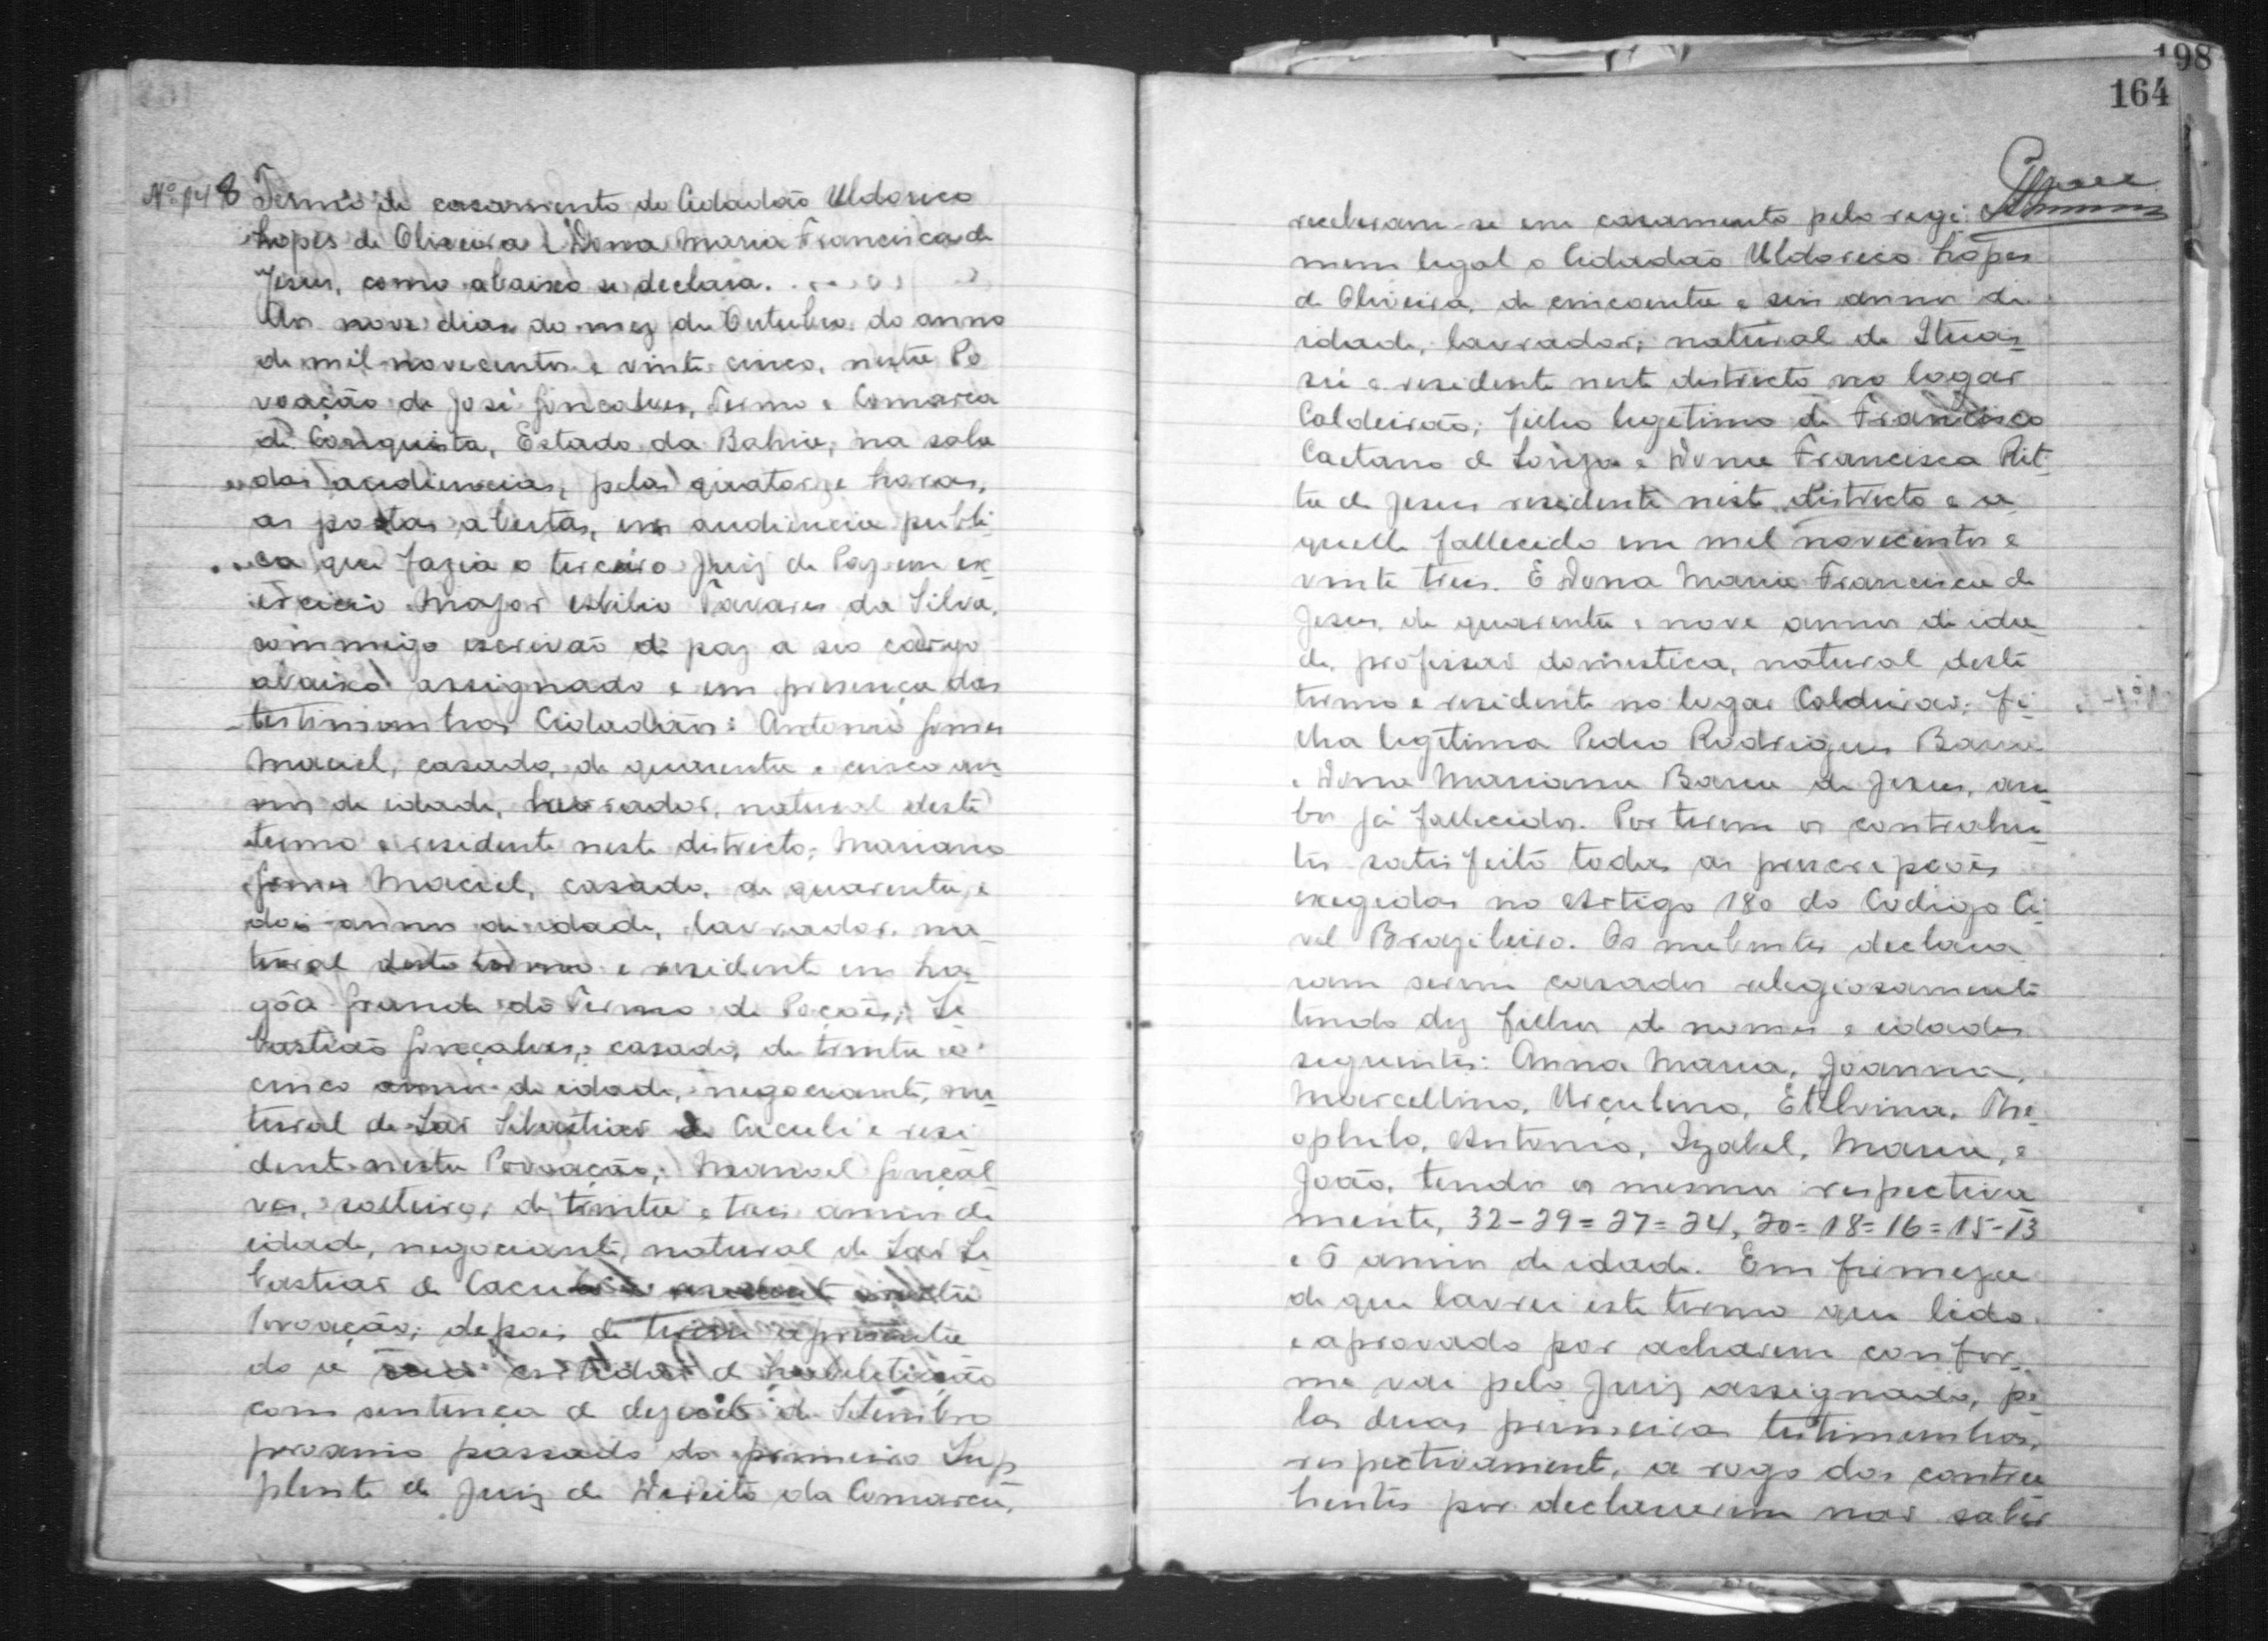 Nº 148 Termo de casamento do Cidadão Uldorico
Lopes de Oliveira e Dona Maria Francisca de
Jesus, como abaixo se declara.
Aos nove dias do mez de Outubro do anno
de mil novecentos e vinte cinco, nesta Po
voação de José Gonçalves, Termo e Comarca
de Conquista, Estado da Bahia, na sala
das audiencias, pelas quatorze horas,
as portas abertas, em audiencia publi
ca que fazia o terceiro Juiz de Paz em ex-
ercicio Major Tavares da Silva,
commigo escrivão de paz a seo cargo
abaixo assignado e em presença das
testimonhas Cidadãos: Antonio Gomes
Maciel, casado, de quarenta e cinco an-
nos de idade, lavrador, natural deste
termo e residente neste districto; Mariano
Gomes Maciel, casado, de quarenta e
dois annos de idade, lavrador, na-
tural deste termo e residente em La-
gôa Grande do Termo de Poções; Se
bastião Gonçalves, casado, de trinta e
cinco annos de idade, negociante, na-
tural de São Sebastião de Caculé e resi
dente nesta Povoação; Manoel Gonçal-
ves, solteiro, de trinta e tres annos de
idade, negociante, natural de São Se
bastião de nesta
Povoação; depois de terem apresenta
do a certidão de habeletação
com sentença de dezoito de Setembro
proximo passado do primeiro Sup
plente de Juiz de Direito da Comarca,
198
164
receberam-se em casamento pelo regi
mem legal o Cidadão Uldorico Lopes
de Oliveira, de cincoenta e seis annos de
idade, lavrador, natural de Ituas-
sú e residente neste districto no logar
Caldeirão; filho legetimo de Francisco
Caetano de Souza e Dona Francisca Rit-
ta de Jesus residente neste districto e a-
quelle fallecido em mil novecentos e
vinte tres. E Dona Maria Francisca de
Jesus, de quarenta e nove annos de ida-
de, profissão domestica, natural deste
termo e residente no logar Caldeirão; fi-
lha legitima Pedro Rodrigues
e Dona Marianna de Jesus, am-
bos já fallecidos. Por terem os contrahen-
tes satisfeito todas as prescrepções
exegidas no Artigo 180 do Codigo Ci-
vel Brazileiro. Os nubentes declara
ram serem casados religiosamente
tendo dez filhos de nomes e idades
seguintes: Anna Maria, Joanna,
Marcellino, Urculino, Etelvina, The
ophilo, Antonio, Izabel, Maria, e
João, tendo os mesmos respectiva
mente, 32-29=27=24, 20=18=16=15-13
e 6 annos de idade. Em firmeza
de que lavrei este termo que lido
e aprovado por acharem confor-
me vai pelo Juiz assignado, pe-
las duas primeiras testimonhas,
respectivament, a rogo dos contra
hentes por declararem não saber